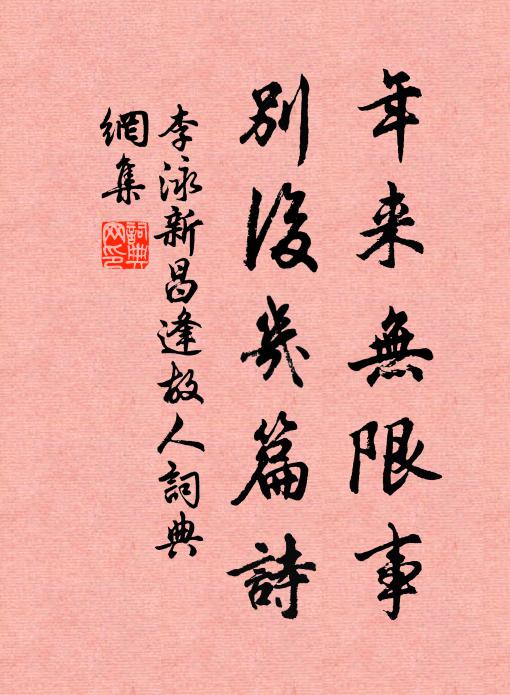 年来無限事
別後幾篇詩
李泳新昌逢故人詞典
網集
詞典网印